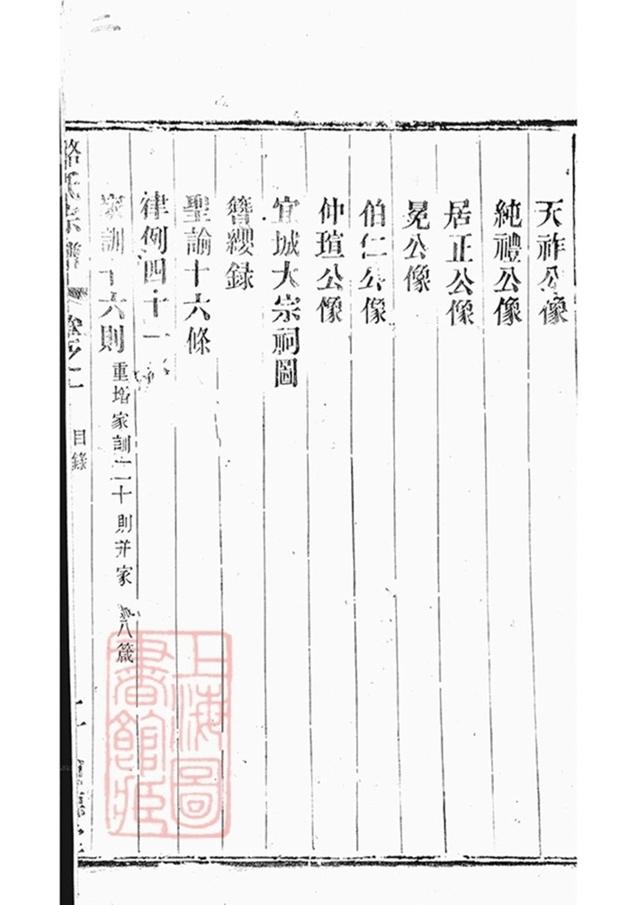 天祚公像
純禮公像
居正公像
冕公像
伯仁公像
仲瑄公像
宜城大宗祠圖
簪纓録
聖諭十六條
律例四十一
家訓十六則 重增家訓二十則并家 八箴
氏宗譜 卷之一 目錄
上海圖書館藏